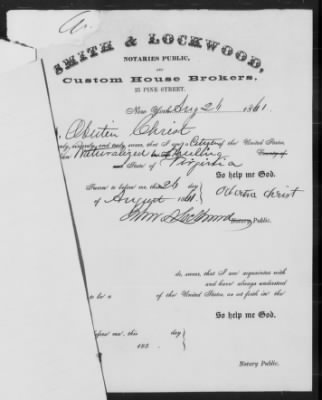 SMITH & LOCKWOOD,
NOTARIES PUBLIC,
AND
Custom House Brokers,
25 PINE STREET.
New York Aug 26 1861.
I, Christ
swear, that I am a Citizen of the United States,
Naturalized
State of Virginia
So help me God.
Sworn to before me, this 26 day
of August 1861.
Christ
Notary Public.
do, swear, that I am acquainted with
and have always understood
to be a of the United States, as set forth in the
So help me God.
before me, this day
185
Notary Public.